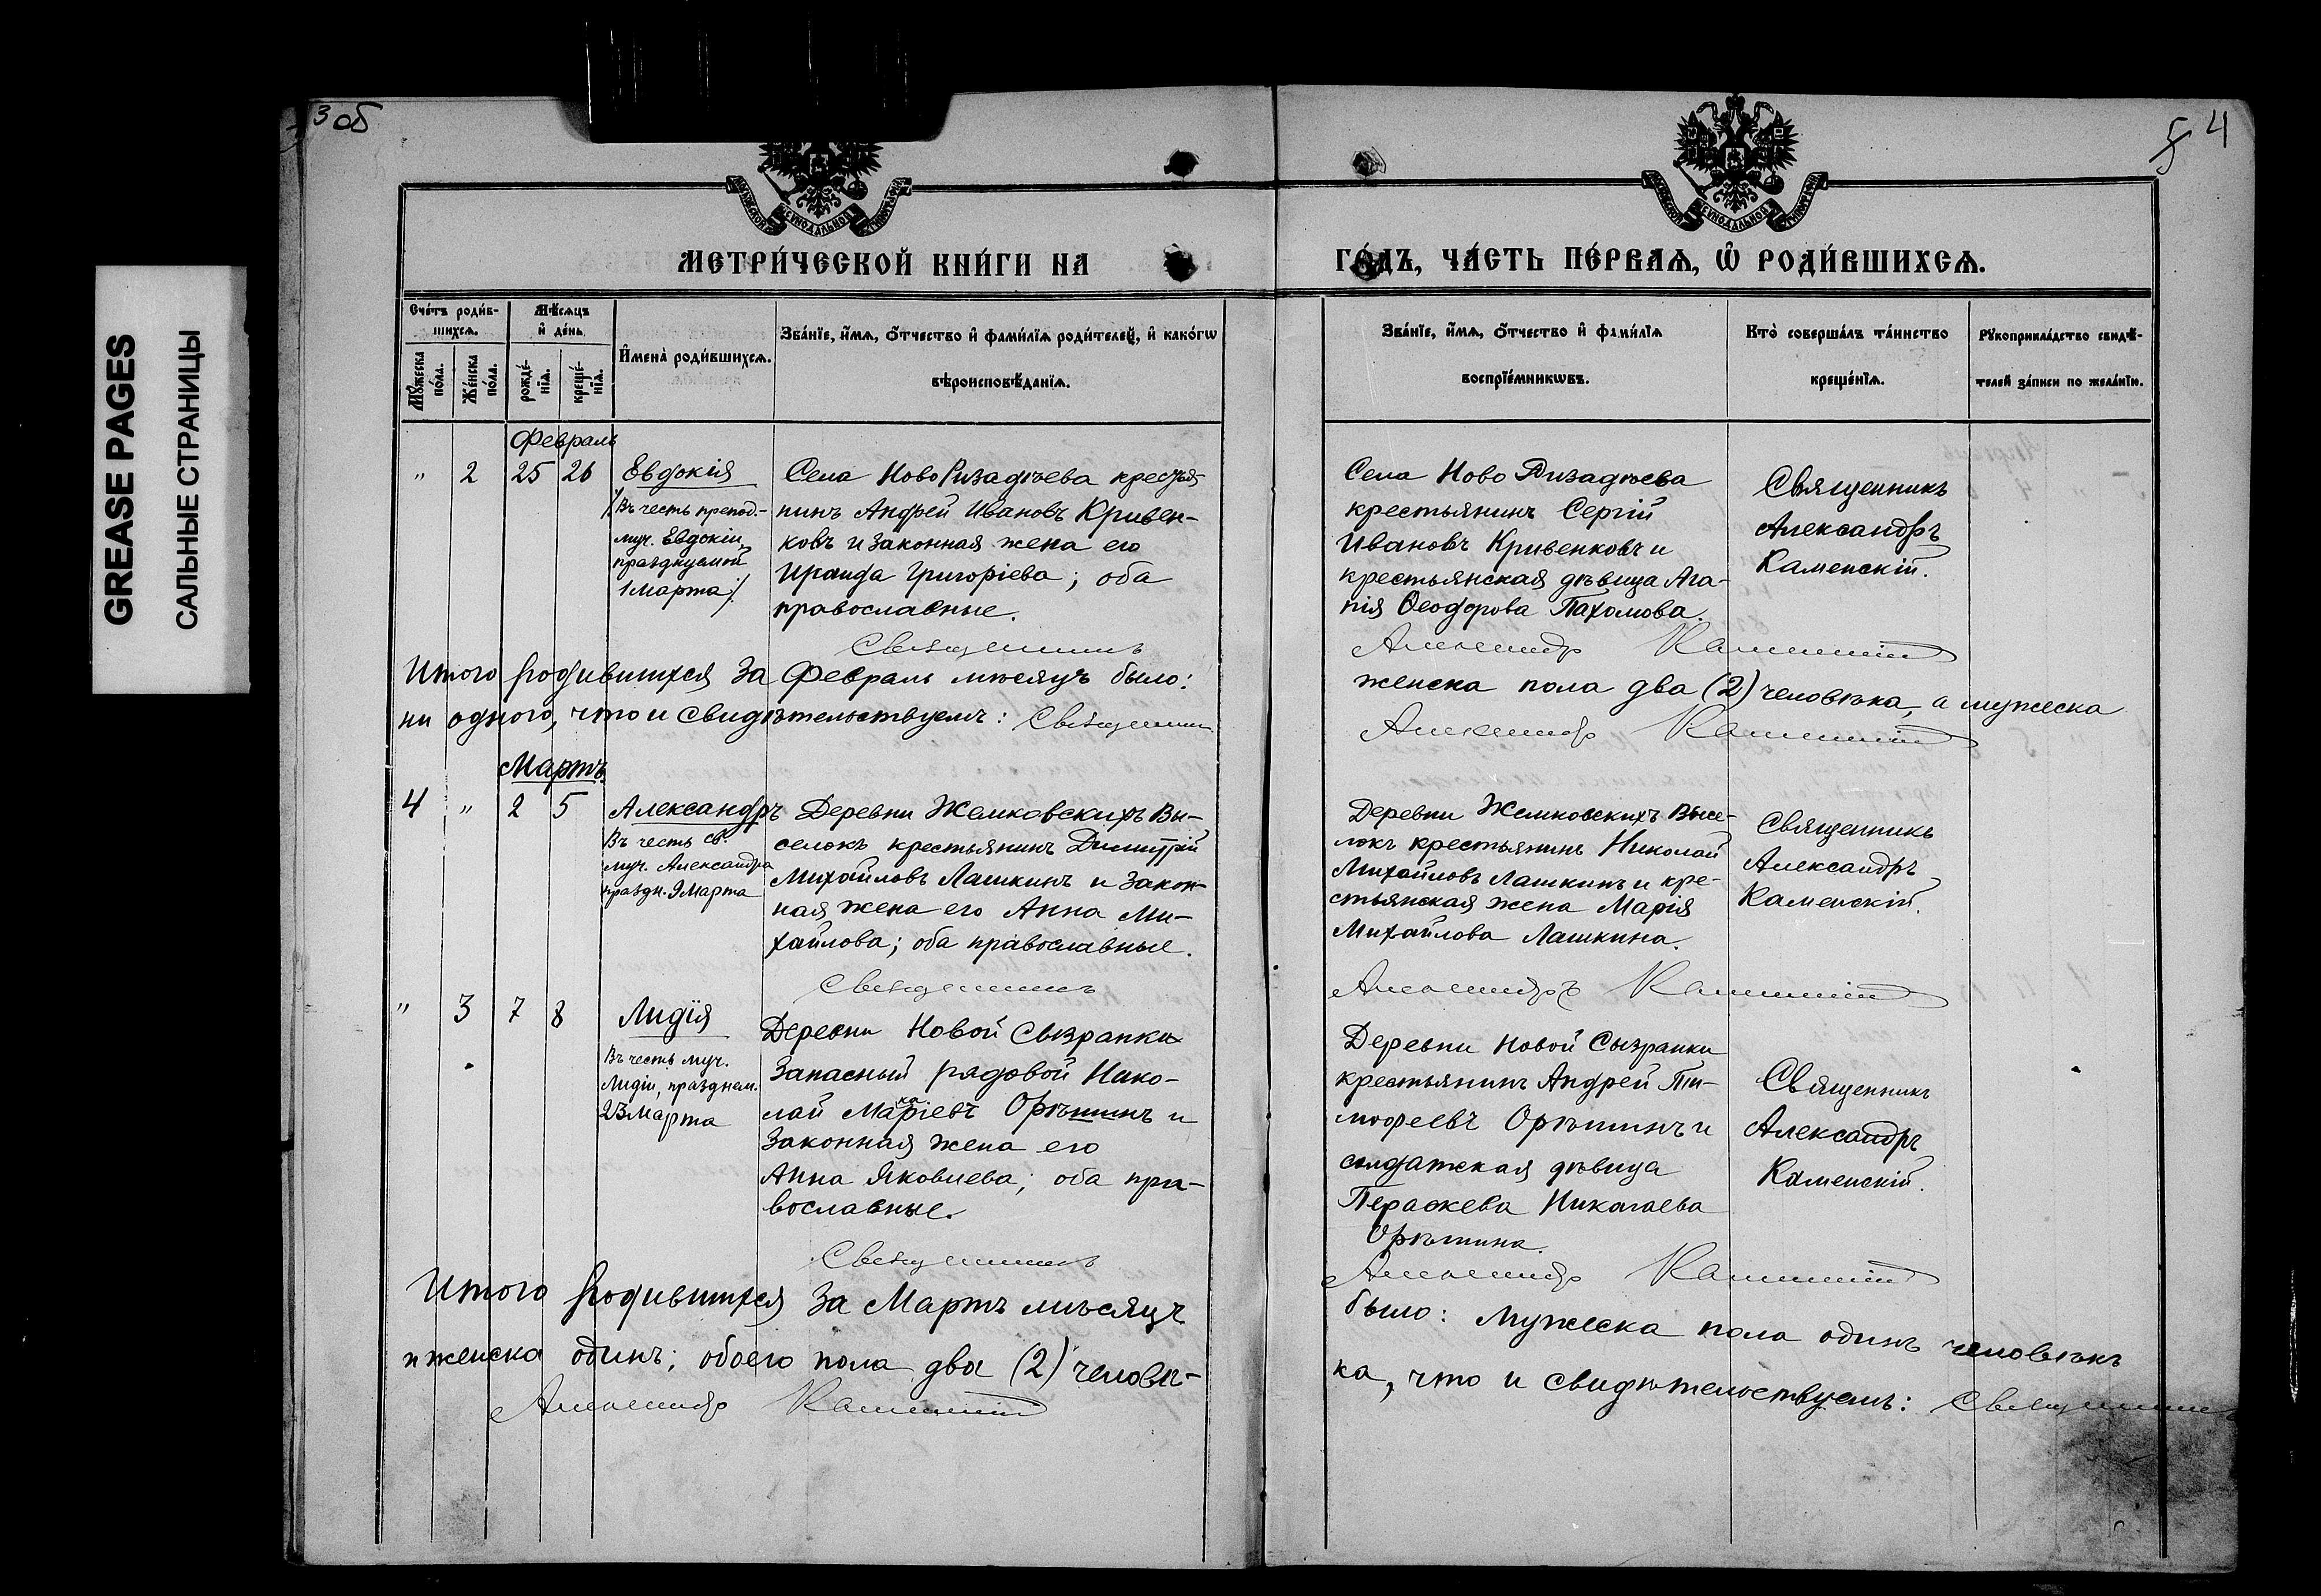 GREASE PAGES
САЛЬНЫЕ СТРАНИЦЫ
3 об
5 4
МЕТРИ́ЧЕСКОЙ КНИ́ГИ НА
ГО́ДЪ, ЧА́СТЬ ПЕ́РВАѦ, Ѽ РОДИ́ВШИХСѦ.
Сче́тъ роди́в-
шихсѧ.
Мѣ́сѧцъ
и҆ де́нь
Мꙋ́жеска по́ла.
Же́нска по́ла.
рожде́-
нїѧ.
креще́-
нїѧ.
И҆мена̀ роди́вшихсѧ.
Зва́нїе, и҆́мѧ, ѻ҆́тчество и҆ фами́лїѧ роди́телей, и҆ како́гѡ
вѣроисповѣ́данїѧ.
Зва́нїе, и҆́мѧ, ѻ҆́тчество и҆ фами́лїѧ
воспрїе́мникѡвъ.
Кто̀ соверша́лъ та́инство
креще́нїѧ.
Рꙋкоприкла́дство свидѣ́-
телей за́писи по жела́нїю.
Февраль
" 2 25 26
Евдокія
Въ честь препод.-
муч. Евдокіи,
празднуемой
1 Марта
Села Ново Ризадѣева крестья-
нинъ Андрей Ивановъ Кривен-
ковъ и законная жена его
Ираида Григоріева; оба
православные.
Села Ново Ризадѣева
крестьянинъ Сергій
Ивановъ Кривенковъ и
крестьянская дѣвица Ага-
пія Ѳеодорова Пахомова.
Священникъ
Александръ
Каменскій.
Священникъ Александръ Каменскій
Итого родившихся за Февраль мѣсяцъ было: женска пола два (2) человѣка, а мужеска
ни одного, что и свидѣтельствуемъ: Священникъ Александръ Каменскій
Мартъ
4 " 2 5
Александръ
Въ честь св.
муч. Александра
праздн. 9 Марта
Деревни Жемковскихъ Вы-
селокъ крестьянинъ Димитрій
Михайловъ Лашкинъ и закон-
ная жена его Анна Ми-
хайлова; оба православные.
Деревни Жемковскихъ Высе-
локъ крестьянинъ Николай
Михайловъ Лашкинъ и кре-
стьянская жена Марія
Михайлова Лашкина.
Священникъ
Александръ
Каменскій.
Священникъ Александръ Каменскій
" 3 7 8
Лидія
Въ честь муч.
Лидіи, празднем.
23 Марта
Деревни Новой Сызранки
Запасный рядовой Нико-
лай Макаріевъ Орѣшинъ и
Законная жена его
Анна Яковлева; оба пра-
вославные.
Деревни Новой Сызранки
крестьянинъ Андрей Ти-
мофеевъ Орѣшинъ и
солдатская дѣвица
Параскева Николаева
Орѣшина.
Священникъ
Александръ
Каменскій.
Священникъ Александръ Каменскій
Итого родившихся за Мартъ мѣсяцъ было: мужеска пола одинъ человѣкъ
и женска одинъ; обоего пола два (2) человѣ- ка, что и свидѣтельствуемъ: Священникъ
Александръ Каменскій